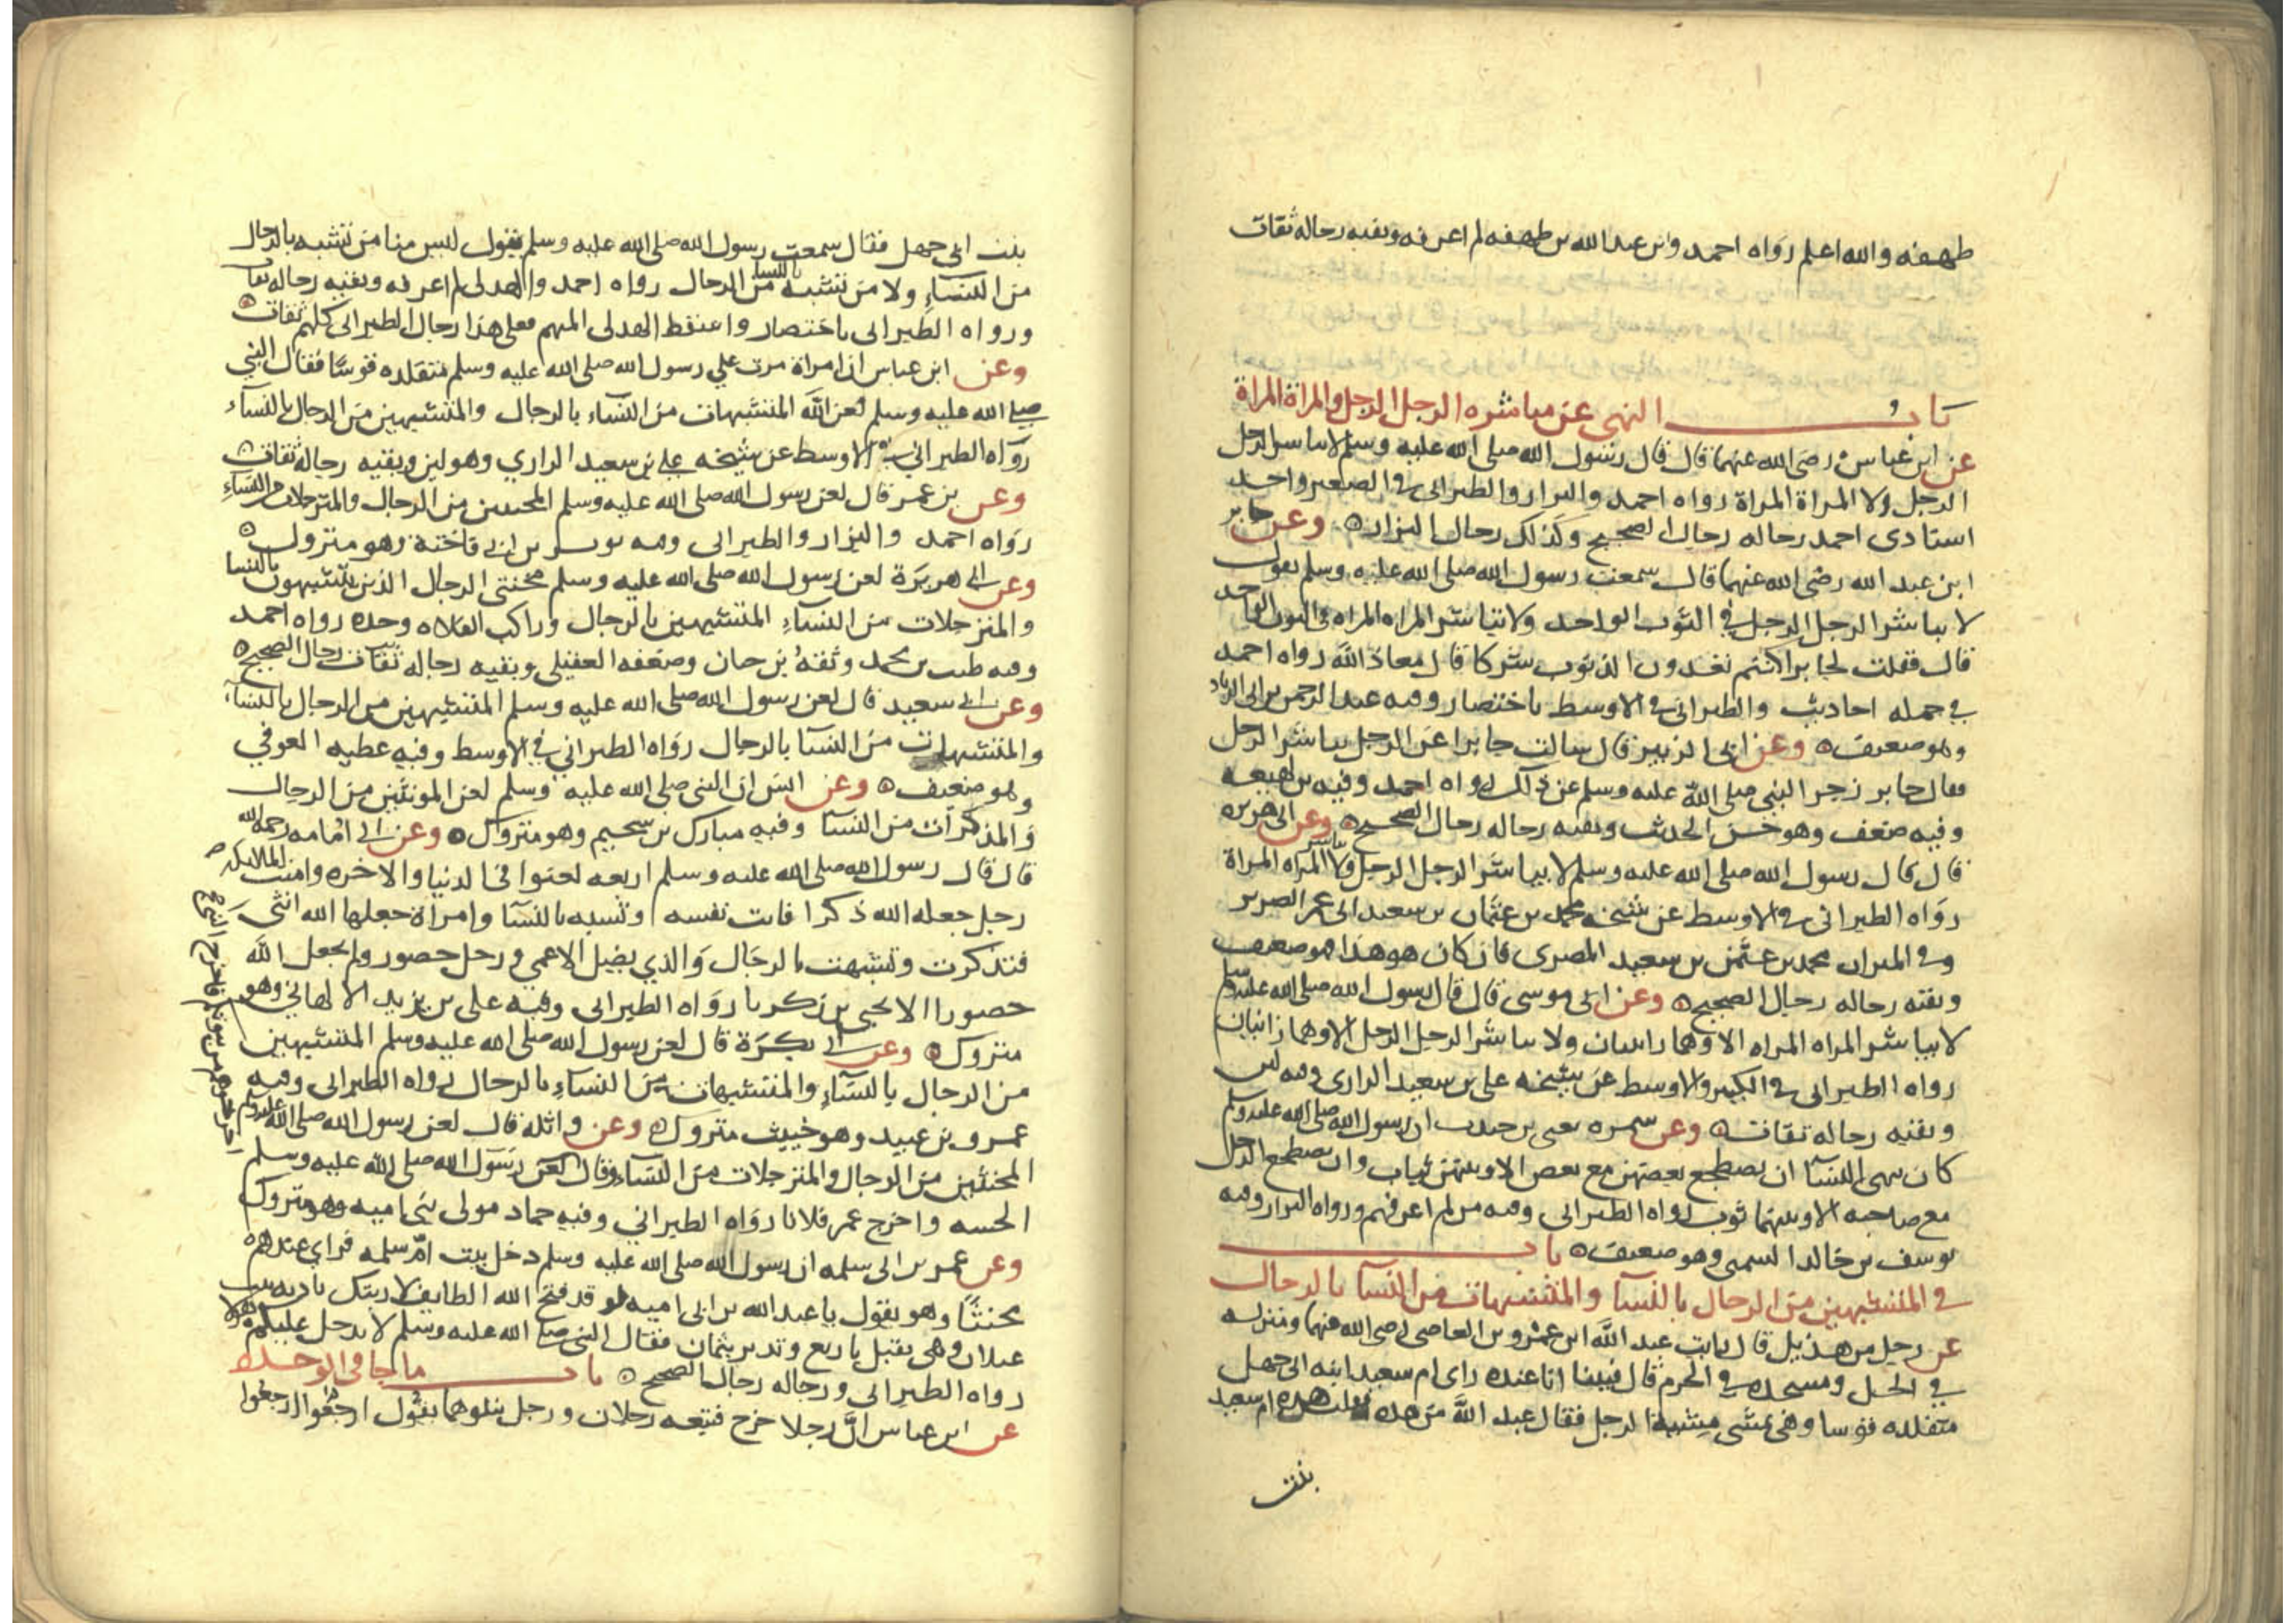 طهفه والله اعلم رواه احمد وابن عبد الله بن طهفه لم اعرفه وبقيه رجاله ثقات
باب النهى عن مباشره الرجل الرجل والمراة المراة
عن ابن عباس رضى الله عنهما قال قال رسول الله صلى الله عليه وسلم لا يباشر الرجل
الرجل ولا المراة المراة رواه احمد والبزار والطبرانى فى الصغير واحد
اسنادى احمد رجاله رجال الصحيح وكذلك رجال البزار وعن جابر
ابن عبد الله رضى الله عنهما قال سمعت رسول الله صلى الله عليه وسلم يقول
لا يباشر الرجل الرجل في الثوب الواحد ولا تباشر المراه المراه فى الثوب الواحد
قال فقلت لجابر اكنتم تعدون الذنوب شركا قال معاذ الله رواه احمد
في جمله احاديث والطبرانى فى الاوسط باختصار وفيه عبد الرحمن بن ابى الزناد
وهو ضعيف وعن ابى الزبير قال سالت جابرا عن الرجل يباشر الرجل
فقال جابر زجر النبي صلى الله عليه وسلم عن ذلك رواه احمد وفيه بن لهيعه
وفيه ضعف وهو حسن الحديث وبقيه رجاله رجال الصحيح وعن ابى هريره
قال قال رسول الله صلى الله عليه وسلم لا يباشر الرجل الرجل ولا تباشر المراه المراة
رواه الطبرانى فى الاوسط عن شيخه محمد بن عثمان بن سعيد ابى عمر الضرير
وفى الميزان محمد بن عثمن بن سعيد المصرى فان كان هو هذا فهو ضعيف
وبقيه رجاله رجال الصحيح وعن ابى موسى قال قال رسول الله صلى الله عليه وسلم
لا تباشر المراه المراه الا وهما زانيتان ولا يباشر الرجل الرجل الا وهما زانيان
رواه الطبرانى فى الكبير والاوسط عن شيخه على بن سعيد الرازى وفيه لين
وبقيه رجاله ثقات وعن سمره يعنى بن جندب ان رسول الله صلى الله عليه وسلم
كان ينهى النسآ ان يضطجع بعضهن مع بعض الا وبينهن ثياب وان يضطجع الرجل
مع صاحبه الا وبينهما ثوب رواه الطبرانى وفيه من لم اعرفهم ورواه البزار وفيه
يوسف بن خالد السمتى وهو ضعيف باب
فى المتشبهين من الرجال بالنسآ والمتشبهات من النسآ بالرجال
عن رجل من هذيل قال رايت عبد الله ابن عمرو بن العاصى رضى الله عنهما ومنزله
في الحل ومسجده في الحرم قال فبينا انا عنده راى ام سعيد ابنه ابى جهل
متقلده قوسا وهى تمشى مشية الرجل فقال عبد الله من هذه فقلت هذه ام سعيد
بنت
بنت ابى جهل فقال سمعت رسول الله صلى الله عليه وسلم يقول ليس منا من تشبه بالرجال
من النساء ولا من تشبه بالنسا من الرجال رواه احمد والهدلى لم اعرفه وبقيه رجاله ثقات
ورواه الطبرانى باختصار واسقط الهدلى المبهم فعلى هذا رجال الطبرانى كلهم ثقات
وعن ابن عباس ان امراة مرت علي رسول الله صلى الله عليه وسلم متقلده قوسًا فقال النبي
صلى الله عليه وسلم لعن الله المتشبهات من النساء بالرجال والمتشبهين من الرجال بالنسآء
رواه الطبراني في الاوسط عن شيخه علي بن سعيد الرازي وهو لين وبقيه رجاله ثقات
وعن بن عمر قال لعن رسول الله صلى الله عليه وسلم المخنثين من الرجال والمترجلات من النساء
رواه احمد والبزار والطبرانى وفيه ثوير بن ابى فاختة وهو متروك
وعن ابى هريرة لعن رسول الله صلى الله عليه وسلم مخنثى الرجال الذين يتشبهون بالنسا
والمترجلات من النساء المتشبهين بالرجال وراكب الفلاه وحده رواه احمد
وفيه طيب بن محمد وثقه بن حبان وضعفه العقيلى وبقيه رجاله ثقات رجال الصحيح
وعن ابى سعيد قال لعن رسول الله صلى الله عليه وسلم المتشبهين من الرجال بالنسآء
والمتشبهات من النسآ بالرجال رواه الطبراني في الاوسط وفيه عطيه العوفي
وهو ضعيف وعن انس ان النبى صلى الله عليه وسلم لعن المونثين من الرجال
والمذكرات من النسآ وفيه مبارك بن سحيم وهو متروك وعن ابى امامه رحمه الله
قال قال رسول الله صلى الله عليه وسلم اربعه لعنوا فى الدنيا والاخره وامنت الملايكه
رجل جعله الله ذكرا فانث نفسه وتشبه بالنسآ وامراة جعلها الله انثى
فتذكرت وتشبهت بالرجال والذي يضل الاعمي ورجل حصور ولم يجعل الله
حصورا الا يحيى بن زكريا رواه الطبرانى وفيه على بن يزيد الالهاني وهو
متروك وعن ابى بكرة قال لعن رسول الله صلى الله عليه وسلم المتشبهين
من الرجال بالنسآء والمتشبهات من النساء بالرجال رواه الطبرانى وفيه
عمرو بن عبيد وهو خبيث متروك وعن واثله قال لعن رسول الله صلى الله عليه وسلم
المخنثين من الرجال والمترجلات من النساء وقال لعن رسول الله صلى الله عليه وسلم
واخرج عمر فلانا رواه الطبراني وفيه حماد مولى بنى اميه وهو متروك
وعن عمر بن ابى سلمه ان رسول الله صلى الله عليه وسلم دخل بيت ام سلمه فراي عندهم
مخنثًا وهو يقول يا عبد الله بن ابى اميه لو قد فتح الله الطايف لاريتك باديه بنت
غيلان وهى تقبل باربع وتدبر بثمان فقال النبى صلى الله عليه وسلم لا يدخل عليكم هولا
رواه الطبرانى ورجاله رجال الصحيح باب ما جا فى الوحده
عن ابن عباس ان رجلا خرج فتبعه رجلان ورجل يتلوهما يقول ارجعا